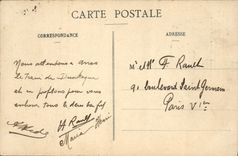 CARTE POSTALE
CORRESPONDANCE
ADRESSE
Nous attendons a Arras
Le Train de Dunkerque
et en profitons pour vous
envoyer tous le deux bonjour
M. et Mme F Rault
91 boulevard Saint Germain
Paris VIe
H Rault
Maria